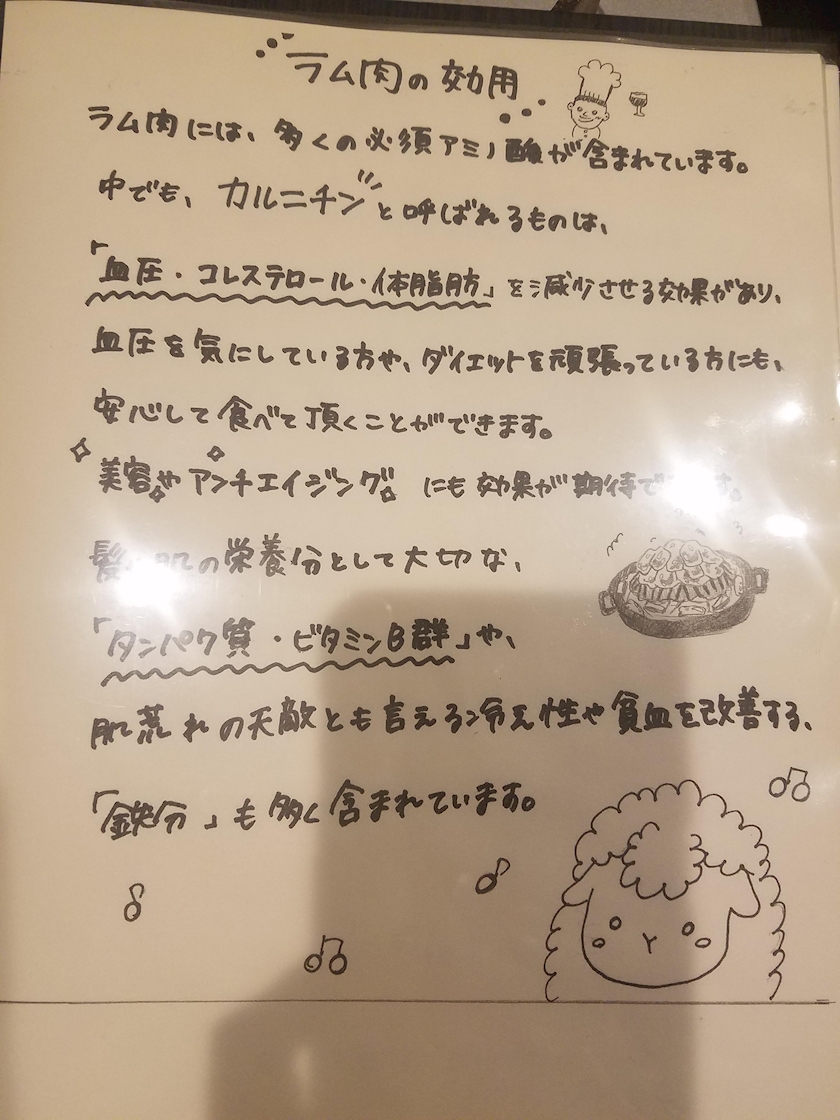 ラム肉の効用
ラム肉には、多くの必須アミノ酸が含まれています。
中でも、カルニチンと呼ばれるものは、
「血圧・コレステロール・体脂肪」を減少させる効果があり、
血圧を気にしている方や、ダイエットを頑張っている方にも、
安心して食べて頂くことができます。
美容やアンチエイジング にも効果が期待で す。
髪 肌の栄養分として大切な、
「タンパク質・ビタミンB群」や、
肌荒れの天敵とも言える冷え性や貧血を改善する、
「鉄分」も多く含まれています。